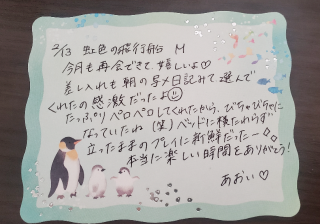 2/13 虹色の飛行船 M
今月も再会できて、嬉しいよ♡
差し入れも朝の写メ日記みて選んで
くれたの感激だったよ☺
たっぷりペロペロしてくれたから、びちゃびちゃに
なっていたね(笑)ベッドに横たわらず
立ったままのプレイに新鮮だったー!○。
本当に楽しい時間をありがとう!
あおい♡